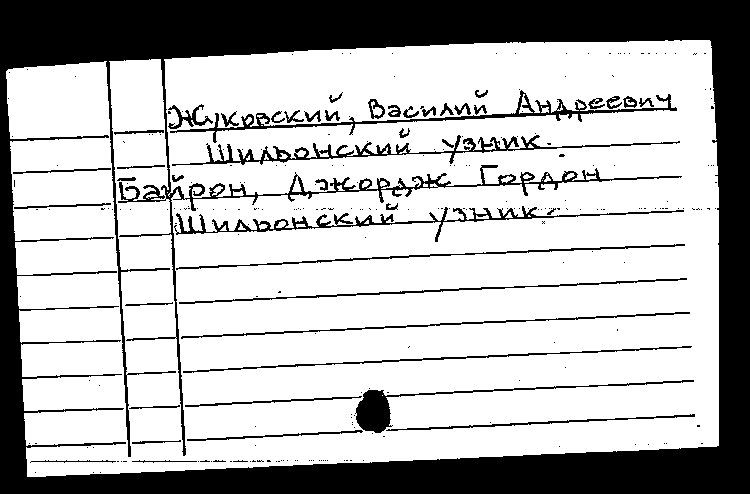 Жуковский, Василий Андреевич
Шильонский узник.
Байрон, Джордж Гордон
Шильонский узник.